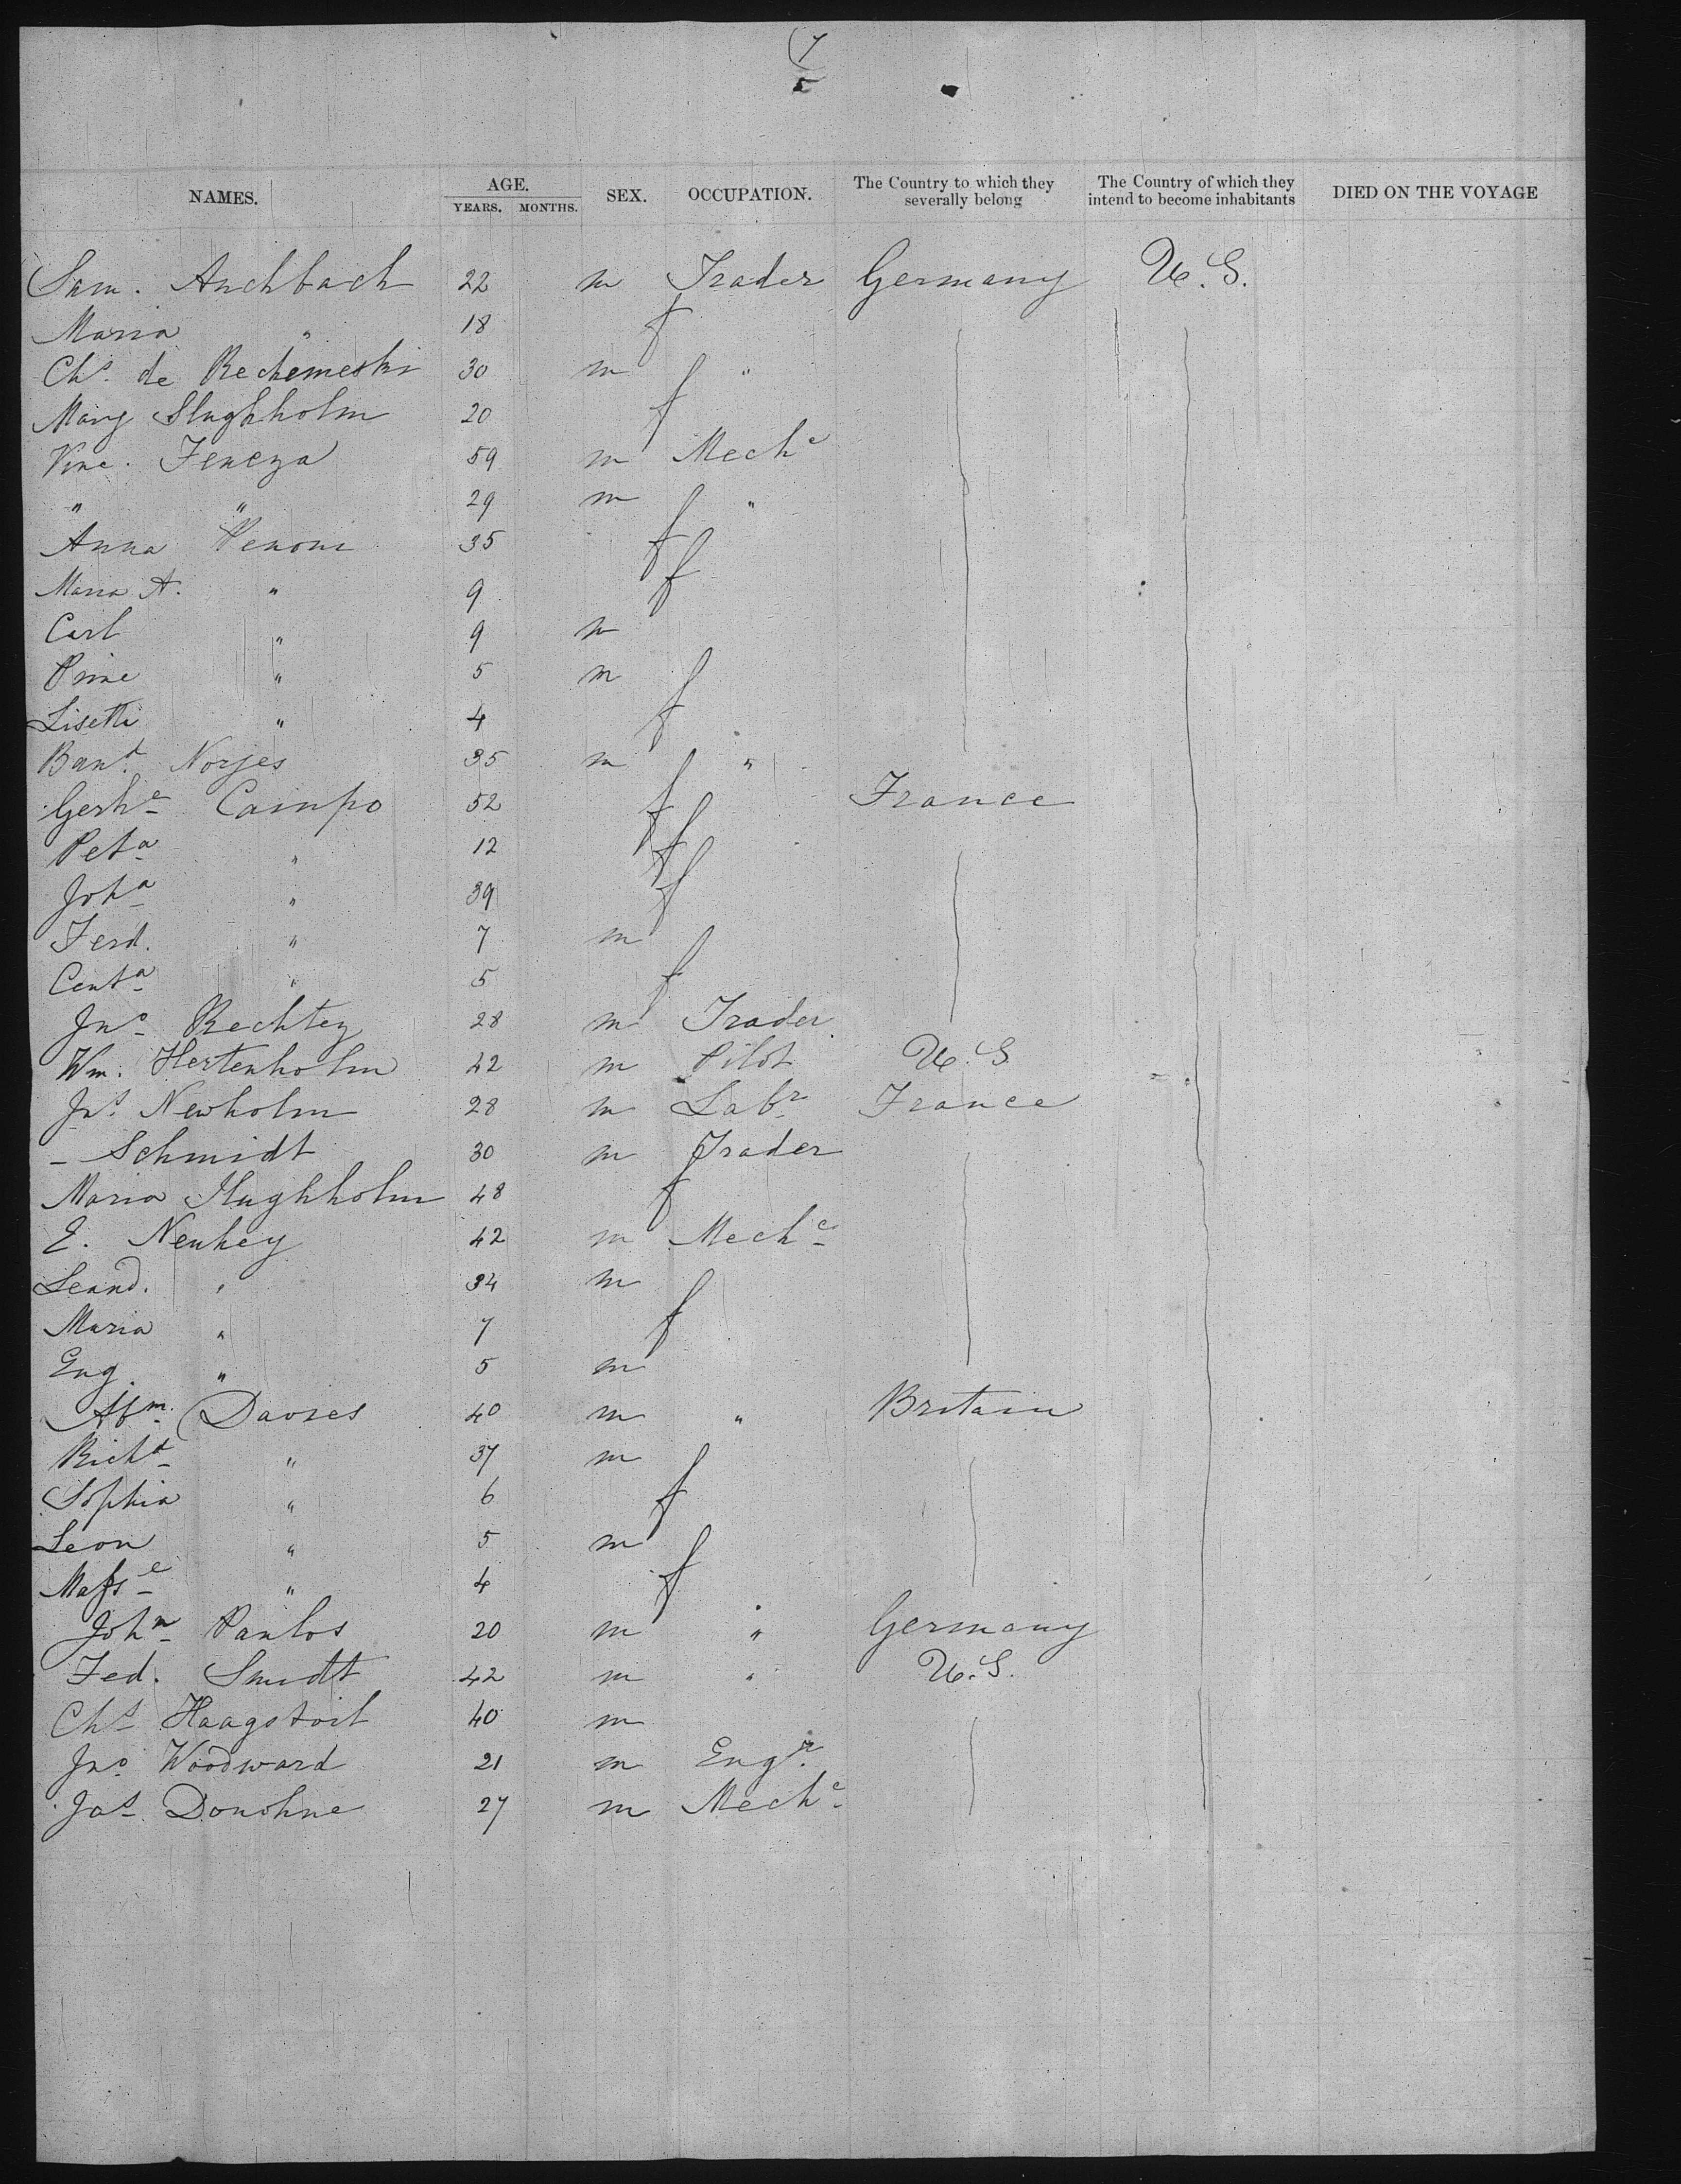 7
NAMES. AGE. YEARS. MONTHS. SEX. OCCUPATION. The Country to which they severally belong The Country of which they intend to become inhabitants DIED ON THE VOYAGE
Sam. Auchbach 22 m Trader Germany U.S.
Maria " 18 f
Chs. de Rechemeski 30 m "
Mary Slughholm 20 f
Vinc. Feneza 59 m Mechc
" " 29 m "
Anna Penoni 35 f
Maria A. " 9 f
Carl " 9 m
" 5 m
Lisette " 4 f
Norjes 35 m "
Gerhe Campo 52 f France
Peta " 12 f
Joha " 39 f
Ferd. " 7 m
Centa " 5 f
Jno Rechtey 28 m Trader
Wm. Hertenholm 42 m Pilot U.S
Jns Newholm 28 m Labr France
- Schmidt 30 m Trader
Maria Slughholm 48 f
E. Neuhey 42 m Mechc
Leand. " 34 m
Maria " 7 f
Eug. " 5 m
Abm. Davies 40 m " Britain
Richd " 37 m
Sophia " 6 f
Leon " 5 m
" 4 f
John Paulos 20 m " Germany
Fed. Smidt 42 m " U.S.
Chs Haagstoit 40 m
Jno Woodward 21 m Engr.
Jas Donohue 27 m Mechc